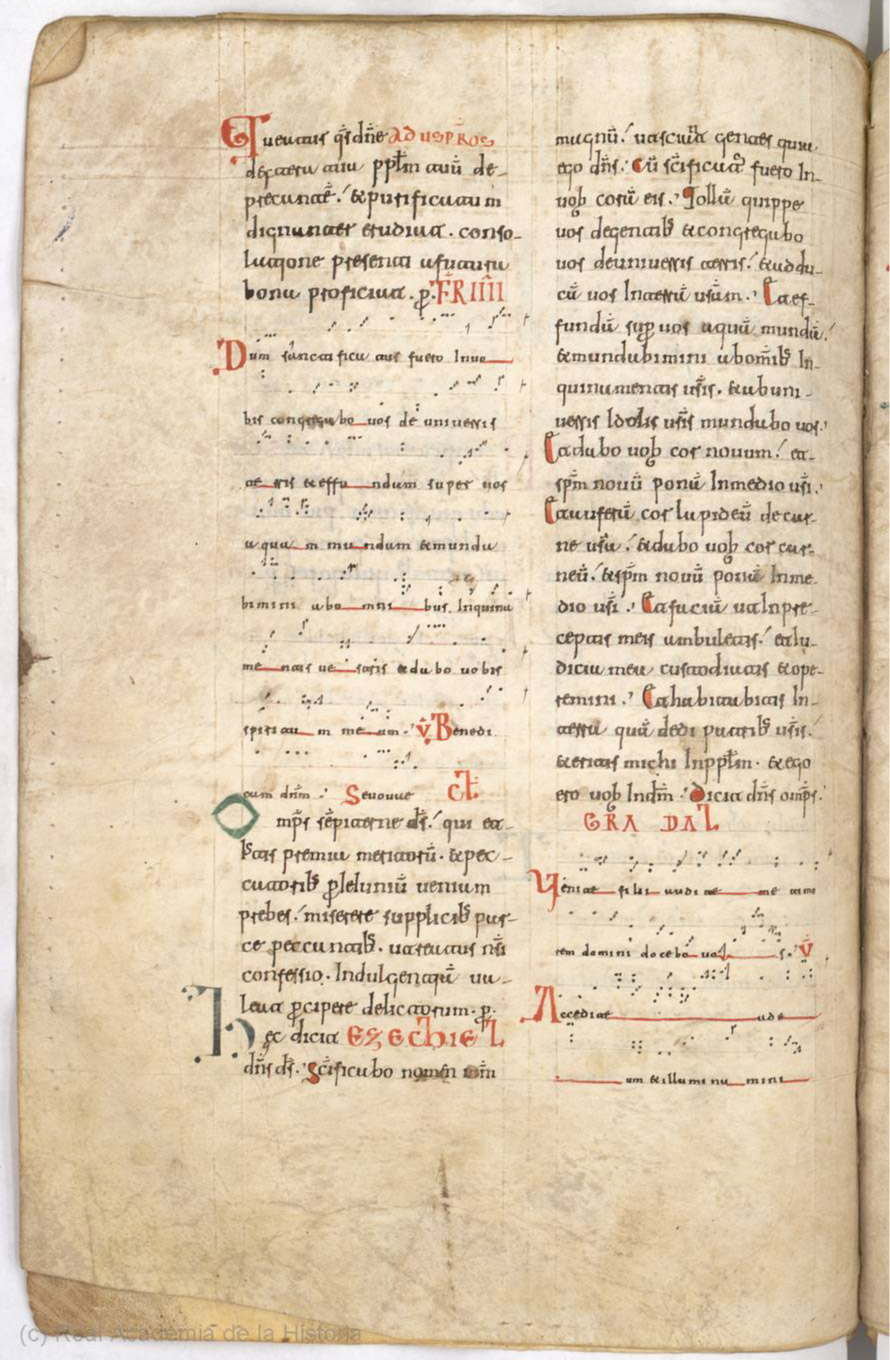 Tueatur q̄s dn̄e AD VESP̄ROS
dextera tua pp̄lm tuū de-
precantē. & purificatum
dignanter erudiat. conso-
latione presenti ut futura
bona proficiat. p. FR IIII
Dum sanctificatus fuero In uo
bis congregabo uos de uniuersis
terris & effundam super uos
aquam mundam & munda
bimini ab omnibus Inquina
mentis uestris & dabo uobis
spiritum meum. V̄ Benedi
cam dnm. Seuouae CT̄
Omp̄s sēpiterne ds̄. qui et
premia meritorū. & pec-
catorib; p Ieiuniū ueniam
prebes. miserere supplicib; par-
ce peccantib;. ut reatus nr̄i
confessio. Indulgentiā ua-
leat p̄cipere delictorum. p.
Hec dicit EZECHIEL
dn̄s ds̄. Sc̄ificabo nomen
magnū. gentes quia
ego dn̄s. Cū sc̄ificat; fuero In
uob; corū eis. Tollā quippe
uos de gentib; & congregabo
uos de uniuersis terris. & addu-
cā uos In terrā uram. Et ef-
fundā sup uos aquā mundā.
& mundabimini ab omīb; In-
quinamentis ur̄is. & ab uni-
uersis Idolis ur̄is mundabo uos.
Et dabo uob; cor nouum. et
sp̄m nouū ponā In medio ur̄i.
Et auferā cor lapideū de car-
ne ur̄a. & dabo uob; cor car-
neū. & sp̄m nouū ponā In me-
dio ur̄i. Et faciā ut In pre-
ceptis meis ambuletis. et Iu-
dicia mea custodiatis & ope-
remini. Et habitabitis In
terra quā dedi patrib; ur̄is.
& eritis michi In pp̄lm. & ego
ero uob; In dm̄. Dicit dn̄s omp̄s.
GRADAL
Uenite filii audite me timo
rem domini docebo uos. V̄
Accedite ade
um & illuminamini
(c) Real Academia de la Historia